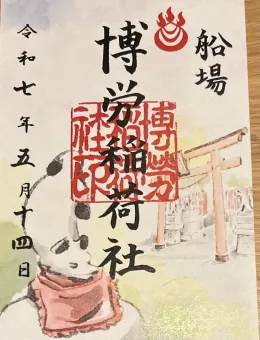 船場
博労稲荷社
博勞
稲荷
社印
令和七年五月十四日